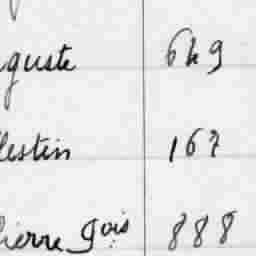 guste 649
lestin 167
ierre Gois 888